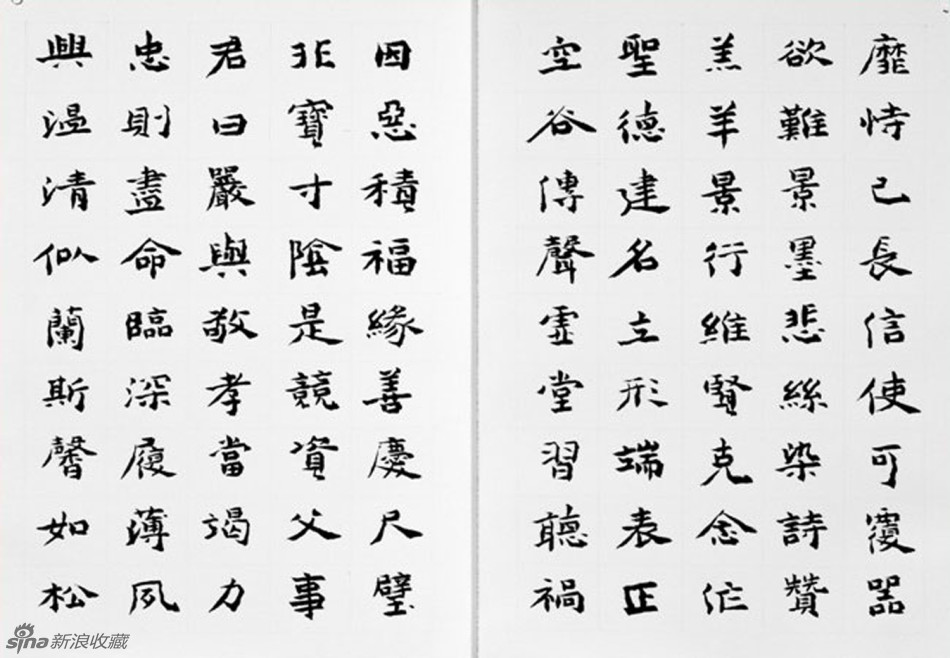 靡恃己長信使可覆器
欲難景墨悲絲染詩讚
羔羊景行維賢克念作
聖德建名立形端表正
空谷傳聲虛堂習聽禍
因惡積福緣善慶尺璧
非寶寸陰是競資父事
君曰嚴與敬孝當竭力
忠則盡命臨深履薄夙
興温清似蘭斯馨如松
sina新浪收藏